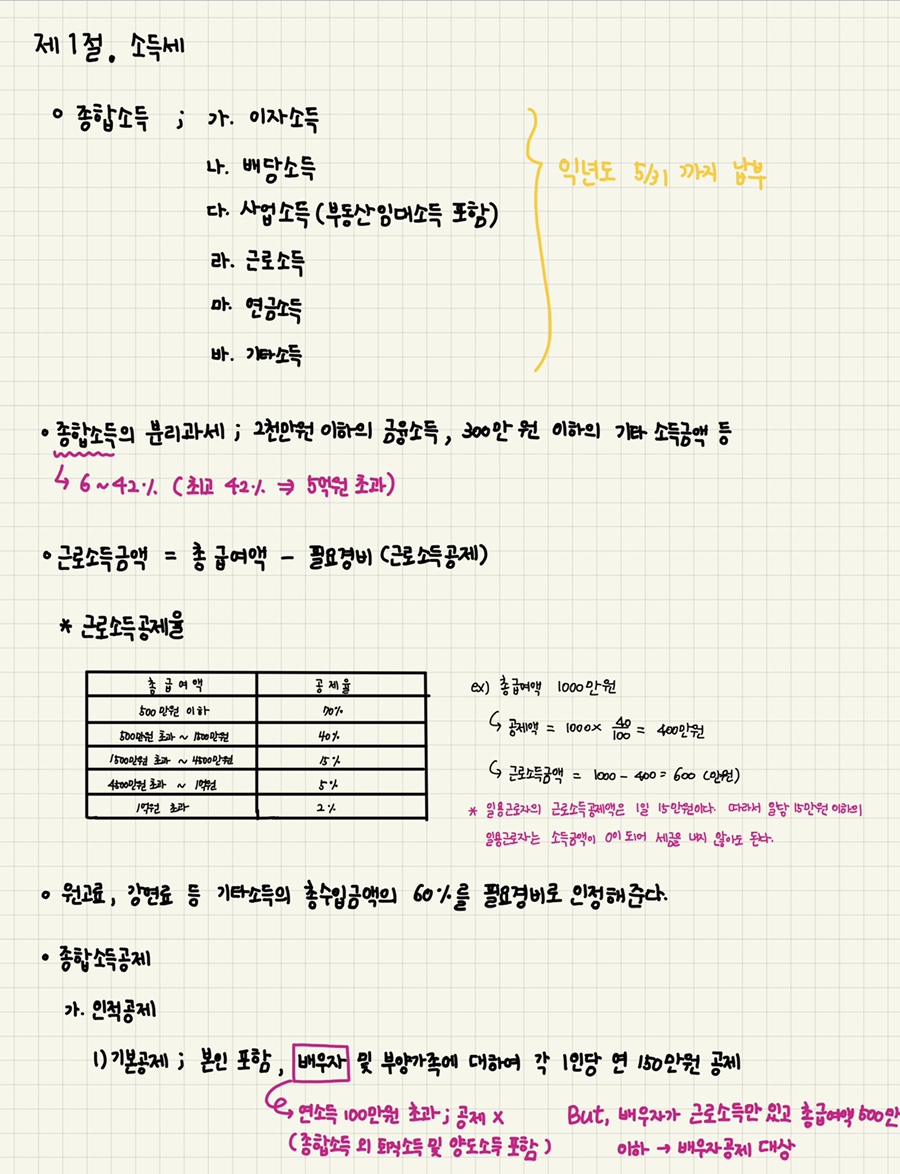 제1절. 소득세
○ 종합소득 ; 가. 이자소득
나. 배당소득
다. 사업소득 (부동산임대소득 포함)
라. 근로소득
마. 연금소득
바. 기타소득
익년도 5/31 까지 납부
• 종합소득의 분리과세 ; 2천만원 이하의 금융소득, 300만 원 이하의 기타 소득금액 등
↳ 6~42% (최고 42% ⇒ 5억원 초과)
○ 근로소득금액 = 총 급여액 - 필요경비 (근로소득공제)
* 근로소득공제율
총급여액 공제율
500만원 이하 70%
500만원 초과 ~ 1500만원 40%
1500만원 초과 ~ 4500만원 15%
4500만원 초과 ~ 1억원 5%
1억원 초과 2%
ex) 총급여액 1000만원
↳ 공제액 = 1000 × 40/100 = 400만원
↳ 근로소득금액 = 1000 - 400 = 600 (만원)
* 일용근로자의 근로소득공제액은 1일 15만원이다. 따라서 일당 15만원 이하의
일용근로자는 소득금액이 0이 되어 세금을 내지 않아도 된다.
○ 원고료, 강연료 등 기타소득의 총수입금액의 60%를 필요경비로 인정해준다.
• 종합소득공제
가. 인적공제
1) 기본공제 ; 본인 포함, 배우자 및 부양가족에 대하여 각 1인당 연 150만원 공제
연소득 100만원 초과 ; 공제 X
(종합소득 외 퇴직소득 및 양도소득 포함)
But, 배우자가 근로소득만 있고 총급여액 500만
이하 → 배우자공제 대상